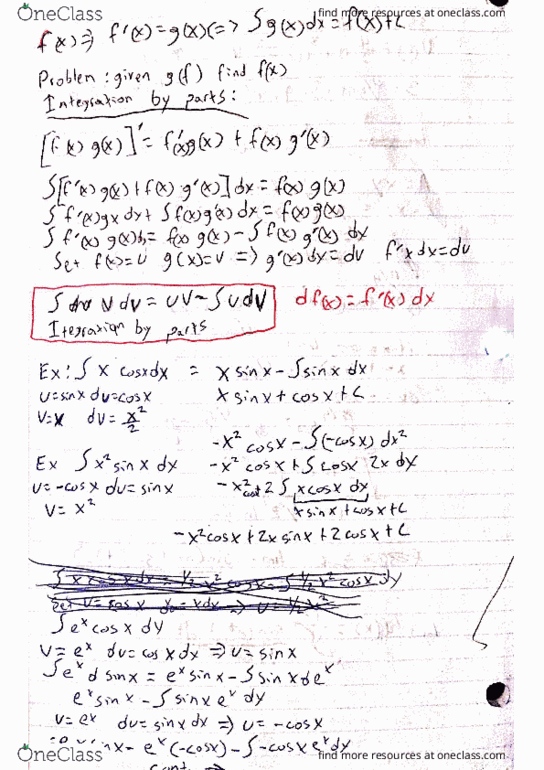 OneClass
find more resources at oneclass.com
f(x)⇒ f'(x)=g(x)(=> ∫g(x)dx=f(x)+C
Problem: given g(f) find f(x)
Integration by parts:
[f(x) g(x)]' = f'(x)g(x) + f(x) g'(x)
∫[f'(x) g(x)+f(x) g'(x)]dx = f(x) g(x)
∫f'(x)gx dx+ ∫f(x)g'(x) dx = f(x)g(x)
∫f'(x) g(x) = f(x) g(x) - ∫f(x) g'(x) dx
Set f(x)=u g(x)=v => g'(x)dx=dv f'x dx=du
v du = uv - ∫udv df(x) = f'(x) dx
Itegration by parts
Ex: ∫ x cosxdx = x sinx - ∫sinx dx
u=sinx du=cosx x sinx + cosx + C
v=x dv= x²/2
-x² cosx - ∫(-cosx) dx²
Ex ∫x² sin x dx -x² cosx + ∫cosx 2x dy
u=-cosx du=sinx -x² cosx + 2 ∫ x cosx dx
v= x² x sinx + cosx + C
-x² cosx + 2x sinx + 2 cosx + C
∫e^x cos x dy
v= e^x du= cos x dx ⇒ u= sinx
∫e^x d sinx = e^x sinx - ∫ sinx de^x
e^x sinx - ∫ sinx e^x dy
v= e^x du= sinx dx ⇒ u= -cosx
sinx - e^x (-cosx) - ∫-cosx e^x dy
OneClass
find more resources at oneclass.com
cont. →